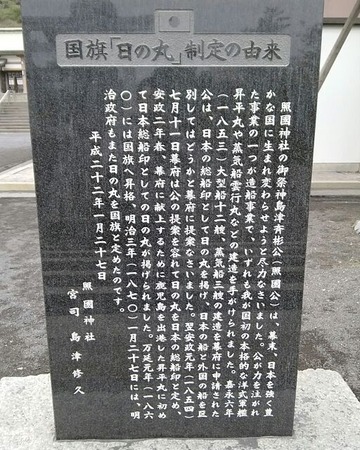 国旗「日の丸」制定の由来
照國神社の御祭神島津斉彬公(照國公)は、幕末、日本を強く豊
かな国に生まれ変わらせようと尽力なさいました。公が力を注がれ
た事業の一つが造船事業で、いずれも我が国初の本格的な洋式軍艦
昇平丸や蒸気船雲行丸などの建造を手がけられました。嘉永六年
(一八五三)大型船十二艘、蒸気船三艘の建造を幕府に申請された
公は、日本の総船印として日の丸を掲げ、日本の船と外国の船を区
別してはどうかと幕府に提案なさいました。翌安政元年(一八五四)
七月十一日幕府は公の提案を容れて日の丸を日本の総船印と定め、
安政二年春、幕府に献上するために鹿児島を出港した昇平丸に初め
て日本総船印としての日の丸が掲げられました。万延元年(一八六
〇)には国旗へ昇格、明治三年(一八七〇)一月二十七日には、明
治政府もまた日の丸を国旗と定めたのです。
平成二十二年一月二十七日
照國神社
宮司 島津修久